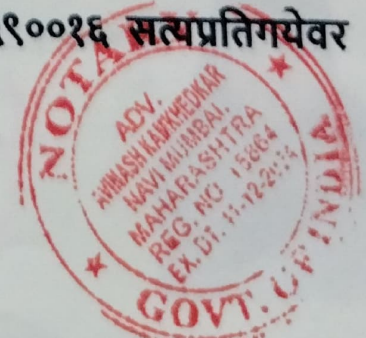 ९००१६ सत्यप्रतिगयेवर
NOTARY
ADV.
AVINASH KADRKHEDKAR
NAVI MUMBAI,
MAHARASHTRA
REG. NO 15864
EX. DT. 11-12-
GOVT. OF INDIA